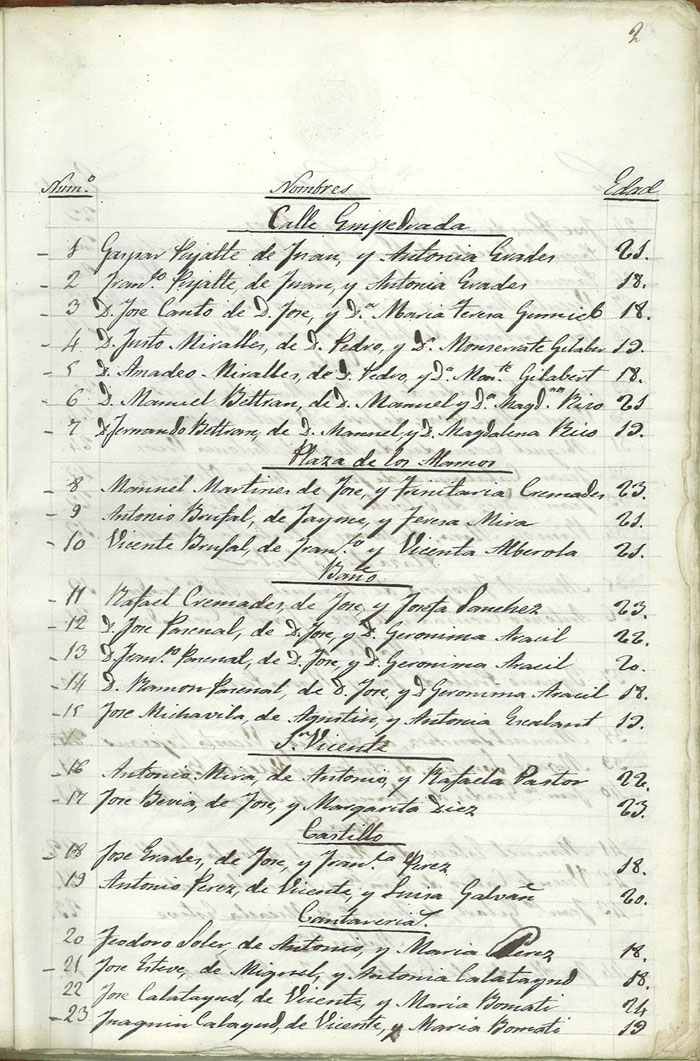 2
Num.º Nombres Edad
Calle Empedrada
1 Gaspar Pujalte de Juan, y Antonia Grades 21.
2 Fran.co Pujalte, de Juan, y Antonia Grades 18.
3 D. Jose Canto de D. Jose, y D.ª Maria Teresa 18.
4 D. Justo Miralles, de D. Pedro, y D.ª Monserrate Gilaber 19.
5 D. Amadeo Miralles, de D. Pedro, y D.ª Mon.te Gilabert 18.
6 D. Manuel Beltran, de D. Manuel y D.ª Magd.na Rico 21
7 D. Fernando Beltran, de D. Manuel, y D. Magdalena Rico 19.
Plaza de los Alamos
8 Manuel Martines de Jose, y Trinitaria Cremades 23.
9 Antonio Brufal, de Jayme, y Teresa Mira 21.
10 Vicente Brufal, de Fran.co y Vicenta Alberola 21.
Baño
11 Rafael Cremades, de Jose, y Josefa Sanchez 23.
12 D. Jose Pascual, de D. Jose, y D. Geronima Aracil 22.
13 D. Fran.co Pascual, de D. Jose, y D. Geronima Aracil 20.
14 D. Ramon Pascual, de D. Jose, y D Geronima Aracil 18.
15 Jose Michavila, de Agustin, y Antonia Escalant 19.
S.n Vicente
16 Antonio Mira, de Antonio, y Rafaela Pastor 22.
17 Jose Bevia, de Jose, y Margarita Diez 23.
Castillo
18 Jose Grades, de Jose, y Fran.ca Perez 18.
19 Antonio Perez, de Vicente, y Luisa Galvañ 20.
Cantareria
20 Teodoro Soler, de Antonio, y Maria Perez 18.
21 Jose Esteve, de Miguel, y Antonia Calatayud 18.
22 Jose Calatayud, de Vicente, y Maria Bomati 24
23 Juaquin Calayud, de Vicente, y Maria Bomati 19